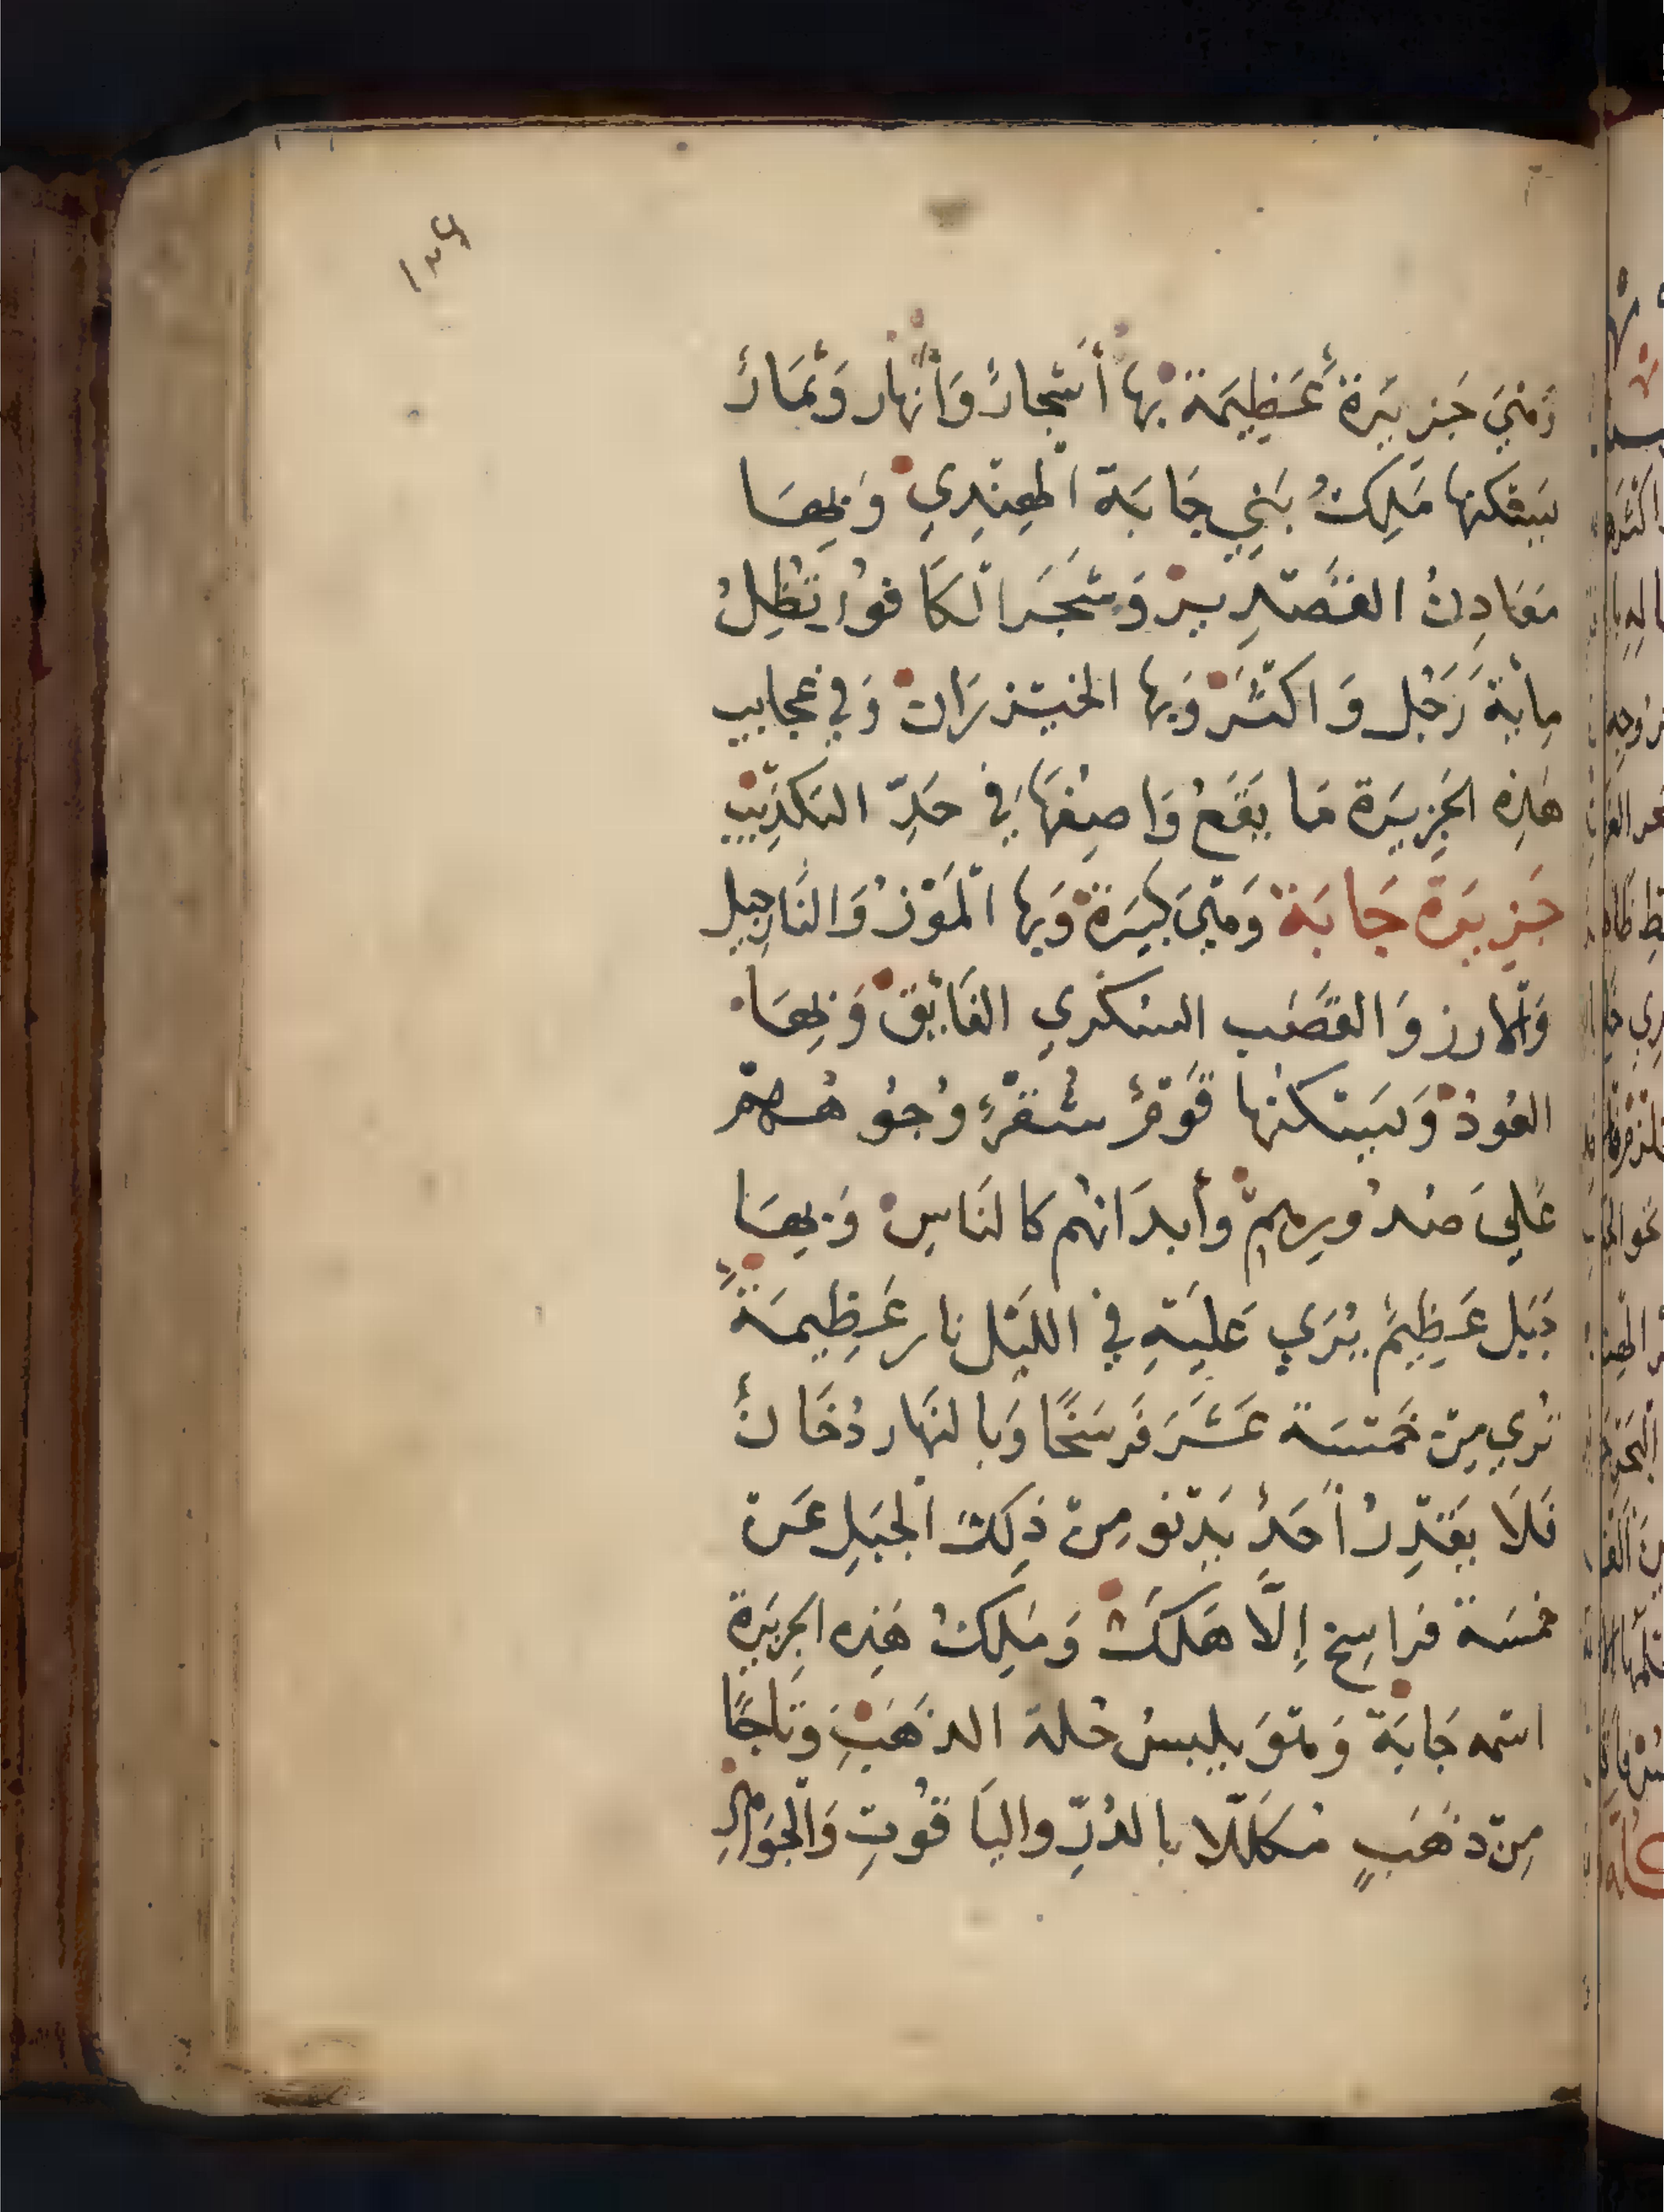 وَهْيَ جَزِيْرَة عَظِيْمَة بها أشْجارٌ وَأنهار وَثمَارٌ
يَسْكنها مَلِكُ بَنِي جَابَة الهِنْدِي وَبِهَا
مَعَادِنُ القَصْدِير وَشَجَر الكَافُور تُظِلُ
مِايَة رَجُل وَاكثَرْ وَبها الخيْزرَان وَفي عجايب
هَذِه الجَزِيرَة مَا يَقَعُ وَاصِفهَا في حَدِّ التكذِيْبِ
جَزِيرَة جَابَة وَهْيَ كَبِيَرة وَبها المَوْزُ وَالنَّارجِيل
وَالارز وَالقَصَب السكري الفَايْق وَبِهَا
العُودْ وَيَسْكنها قَوْمٌ شقْرٌ وُجُوهُهمْ
عَلي صُدُورِهِمْ وأبدَانهم كالنَاسِ وَبِهَا
جَبَل عَظِيمٌ يُرَي عَليْهِ في الليْل نار عَظِيمَةٌ
تُري مِنْ خَمْسَة عَشَرَ فَرسَخًا وَبالنَهار دُخَانٌ
فَلا يَقْدِرُ أحَدٌ يَدْنو مِنْ ذلِكَ الجَبَلِ عَن
خمسَة فراسِخ إِلّا هَلَكَ وَمَلِكُ هَذِه الجزيرَة
اسْمه جَابَة وَهْوَ يلبسُ حُلة الذهَبِ وَتاجًا
مِنْ ذهَبٍ مُكَلَّلا بالدُرّ واليَاقُوتِ وَالجَوَاهِرِ